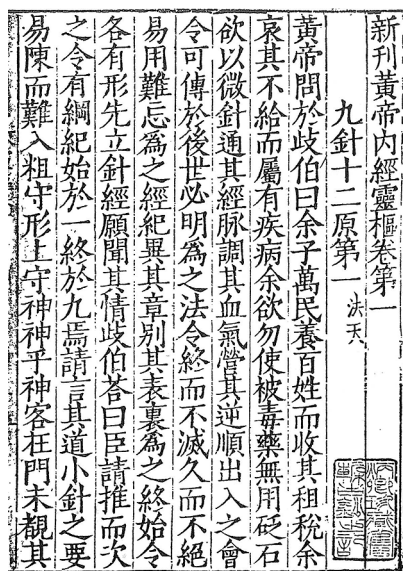 新刊黃帝內經靈樞卷第一
九針十二原第一 法天
黃帝問於歧伯曰余子萬民養百姓而收其租稅余
哀其不給而屬有疾病余欲勿使被毒藥無用砭石
欲以微針通其經脉調其血氣營其逆順出入之會
令可傳於後世必明爲之法令終而不滅久而不絕
易用難忘爲之經紀異其章別其表裏爲之終始令
各有形先立針經願聞其情歧伯荅曰臣請推而次
之令有綱紀始於一終於九焉請言其道小針之要
易陳而難入粗守形上守神神乎神客在門未覩其